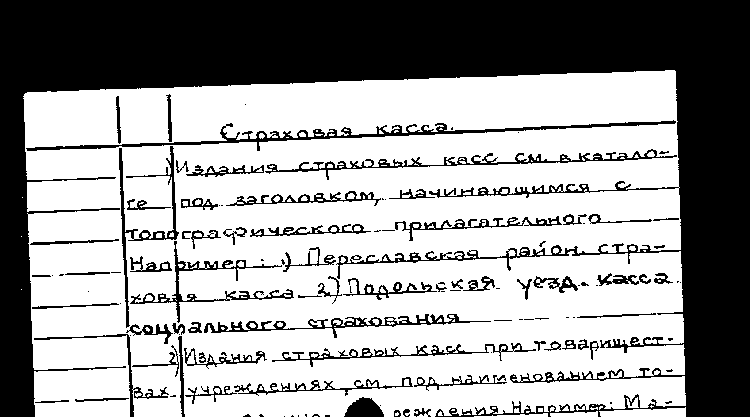 Страховая касса.
1) Издания страховых касс см. в катало-
ге под заголовком, начинающимся с
топографического прилагательного
Например: 1) Переславская район. стра-
ховая касса. 2) Подольская уезд. касса
социального страхования
2) Издания страховых касс при товарищест-
вах, учреждениях, см. под наименованием то-
реждения. Например: Ма-